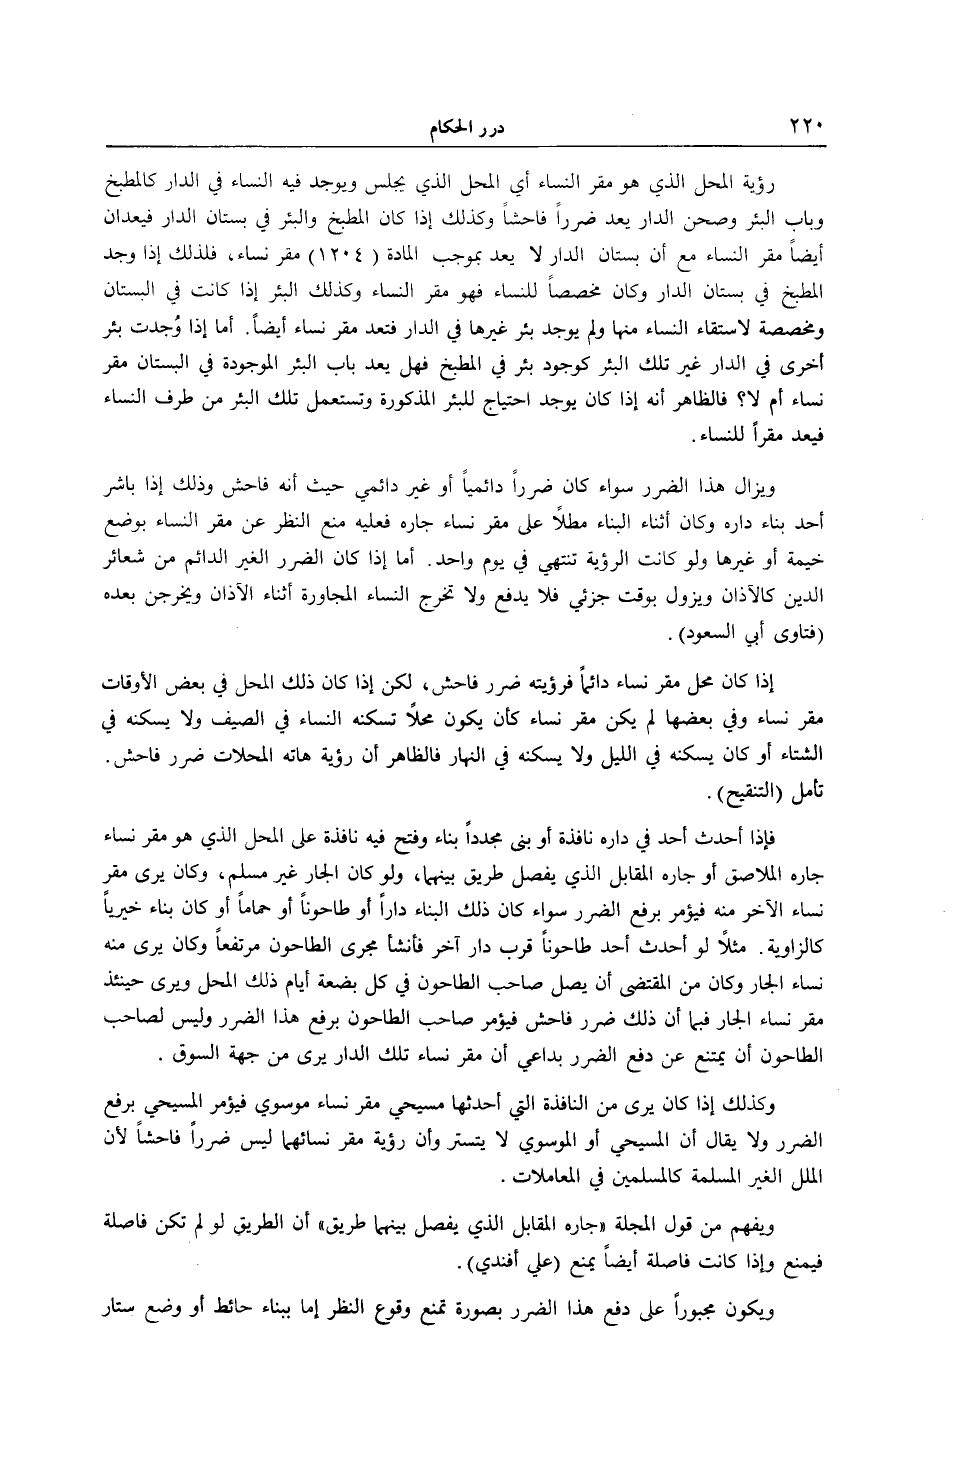 ٢٢٠
درر الحكام
رؤية المحل الذي هو مقر النساء أي المحل الذي يجلس ويوجد فيه النساء في الدار كالمطبخ
وباب البئر وصحن الدار يعد ضرراً فاحشاً وكذلك إذا كان المطبخ والبئر في بستان الدار فيعدان
أيضاً مقر النساء مع أن بستان الدار لا يعد بموجب المادة ( ١٢٠٤) مقر نساء، فلذلك إذا وجد
المطبخ في بستان الدار وكان مخصصاً للنساء فهو مقر النساء وكذلك البئر إذا كانت في البستان
ومخصصة لاستقاء النساء منها ولم يوجد بئر غيرها في الدار فتعد مقر نساء أيضاً. أما إذا وُجدت بئر
أخرى في الدار غير تلك البئر كوجود بئر في المطبخ فهل يعد باب البئر الموجودة في البستان مقر
نساء أم لا؟ فالظاهر أنه إذا كان يوجد احتياج للبئر المذكورة وتستعمل تلك البئر من طرف النساء
فيعد مقراً للنساء.
ويزال هذا الضرر سواء كان ضرراً دائمياً أو غير دائمي حيث أنه فاحش وذلك إذا باشر
أحد بناء داره وكان أثناء البناء مطلاً على مقر نساء جاره فعليه منع النظر عن مقر النساء بوضع
خيمة أو غيرها ولو كانت الرؤية تنتهي في يوم واحد. أما إذا كان الضرر الغير الدائم من شعائر
الدين كالآذان ويزول بوقت جزئي فلا يدفع ولا تخرج النساء المجاورة أثناء الآذان ويخرجن بعده
(فتاوى أبي السعود).
إذا كان محل مقر نساء دائماً فرؤيته ضرر فاحش، لكن إذا كان ذلك المحل في بعض الأوقات
مقر نساء وفي بعضها لم يكن مقر نساء كأن يكون محلاً تسكنه النساء في الصيف ولا يسكنه في
الشتاء أو كان يسكنه في الليل ولا يسكنه في النهار فالظاهر أن رؤية هاته المحلات ضرر فاحش.
تأمل (التنقيح).
فإذا أحدث أحد في داره نافذة أو بنى مجدداً بناء وفتح فيه نافذة على المحل الذي هو مقر نساء
جاره الملاصق أو جاره المقابل الذي يفصل طريق بينهما، ولو كان الجار غير مسلم، وكان يرى مقر
نساء الآخر منه فيؤمر برفع الضرر سواء كان ذلك البناء داراً أو طاحوناً أو حماماً أو كان بناء خيرياً
كالزاوية. مثلاً لو أحدث أحد طاحوناً قرب دار آخر فأنشأ مجرى الطاحون مرتفعاً وكان يرى منه
نساء الجار وكان من المقتضى أن يصل صاحب الطاحون في كل بضعة أيام ذلك المحل ويرى حينئذ
مقر نساء الجار فبما أن ذلك ضرر فاحش فيؤمر صاحب الطاحون برفع هذا الضرر وليس لصاحب
الطاحون أن يمتنع عن دفع الضرر بداعي أن مقر نساء تلك الدار يرى من جهة السوق .
وكذلك إذا كان يرى من النافذة التي أحدثها مسيحي مقر نساء موسوي فيؤمر المسيحي برفع
الضرر ولا يقال أن المسيحي أو الموسوي لا يتستر وأن رؤية مقر نسائهما ليس ضرراً فاحشاً لأن
الملل الغير المسلمة كالمسلمين في المعاملات .
ويفهم من قول المجلة «جاره المقابل الذي يفصل بينهما طريق» أن الطريق لو لم تكن فاصلة
فيمنع وإذا كانت فاصلة أيضاً يمنع (علي أفندي).
ويكون مجبوراً على دفع هذا الضرر بصورة تمنع وقوع النظر إما ببناء حائط أو وضع ستار